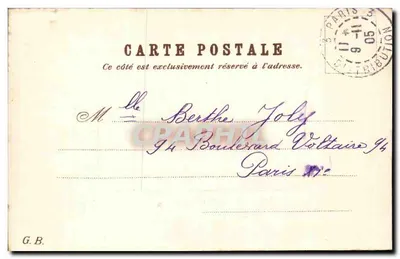 CARTE POSTALE
Ce côté est exclusivement réservé à l'adresse.
PARIS 3
11 *
9 - 11
05
DISTRIBUTION
Mlle Berthe Joly
94 Boulevard Voltaire 94
Paris XIe
G. B.